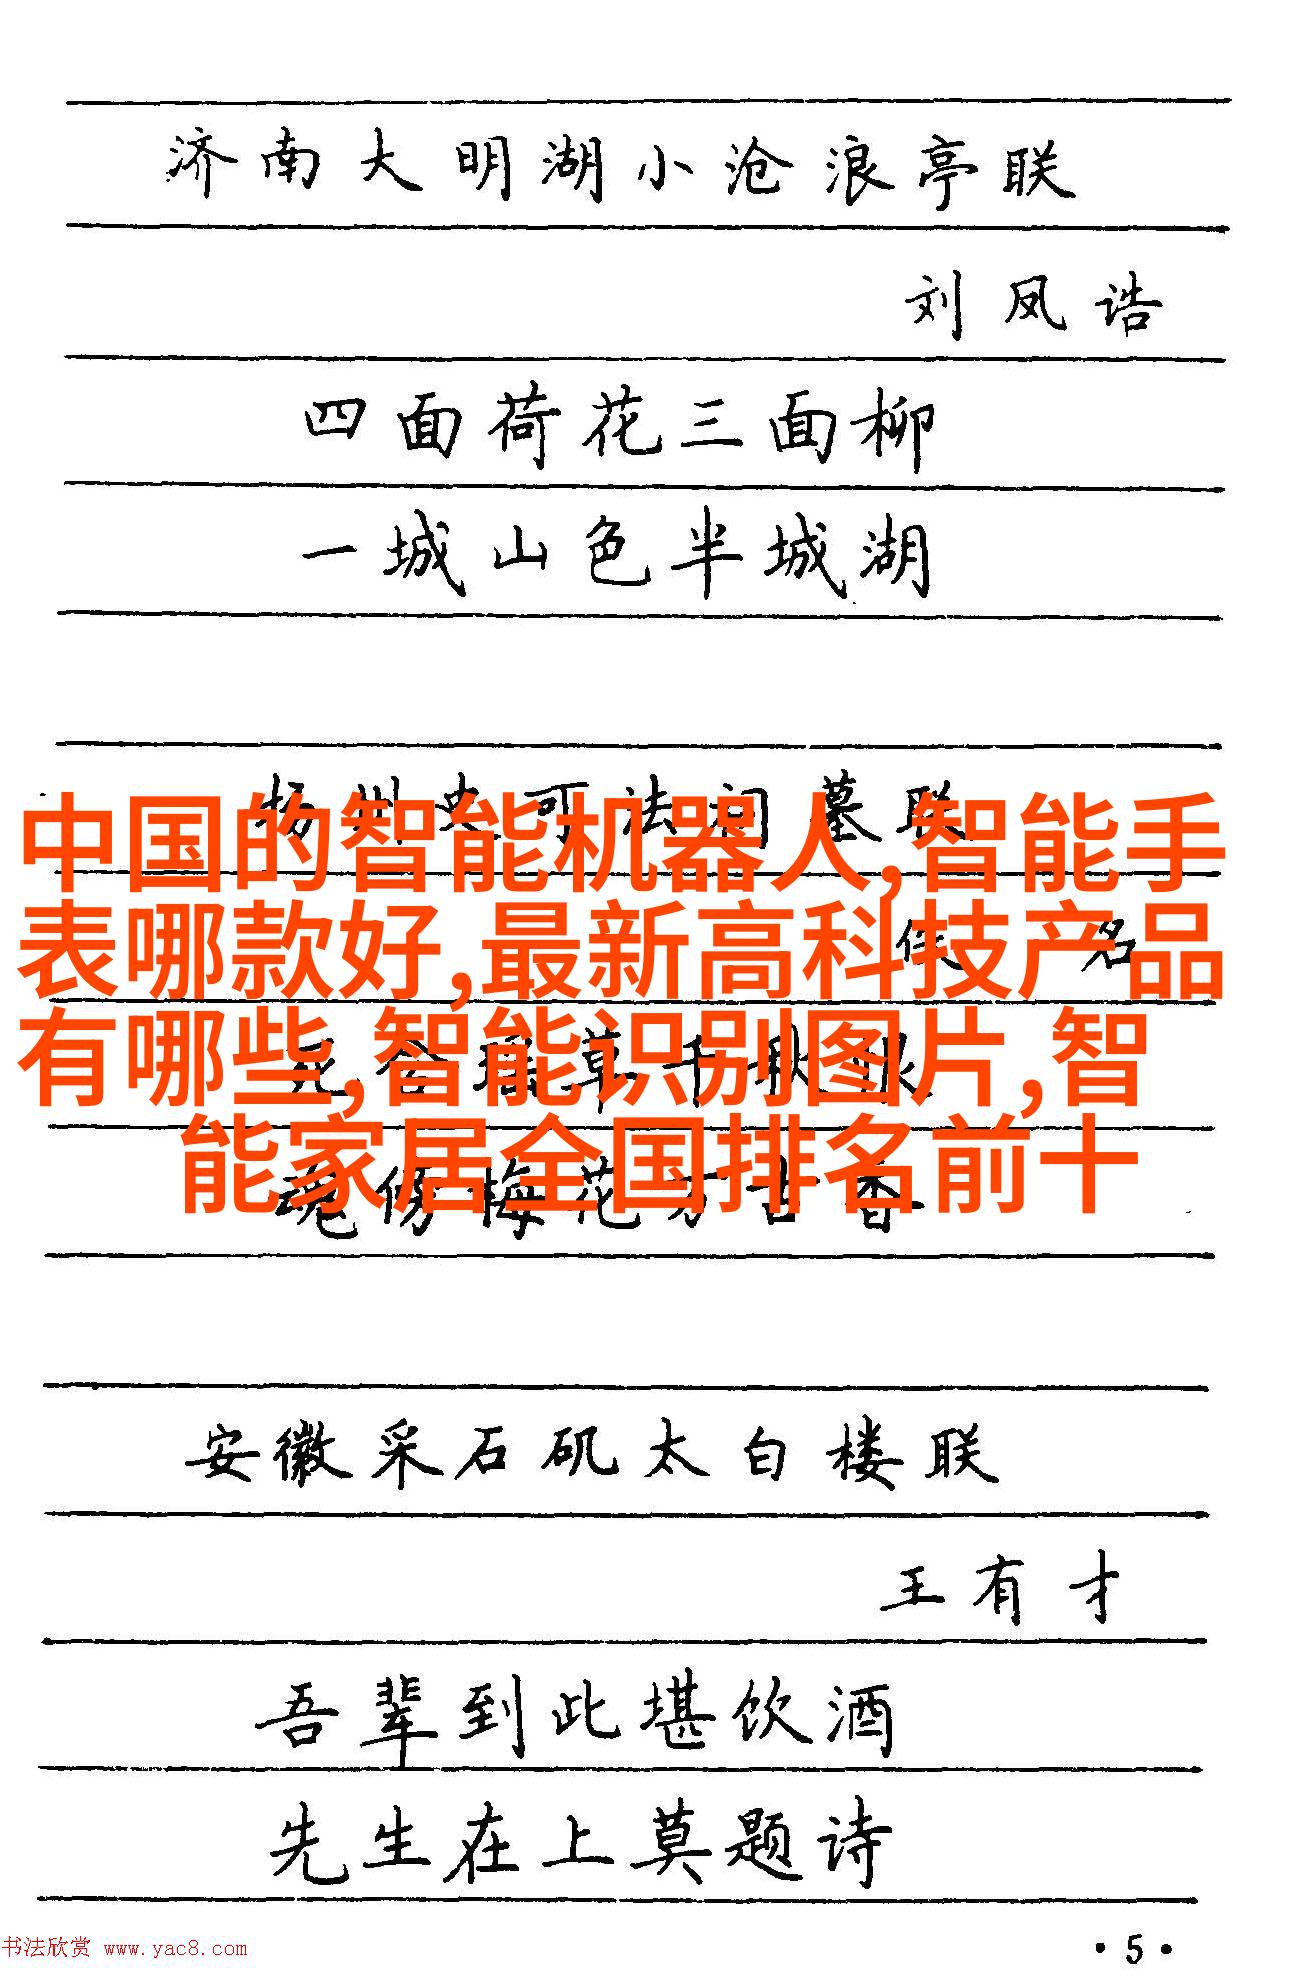 济南大明湖小沧浪亭联
刘凤诰
四面荷花三面柳
一城山色半城湖
扬州史可法祠墓联
中国的智能机器人,智能手
佚名
表哪款好,最新高科技产品
草千秋恨
有哪些,智能识别图片,智
能家居全国排名前十
魂傍梅花万古香
安徽采石矶太白楼联
王有才
吾辈到此堪饮酒
先生在上莫题诗
书法欣赏 www.yac8.com
·5·